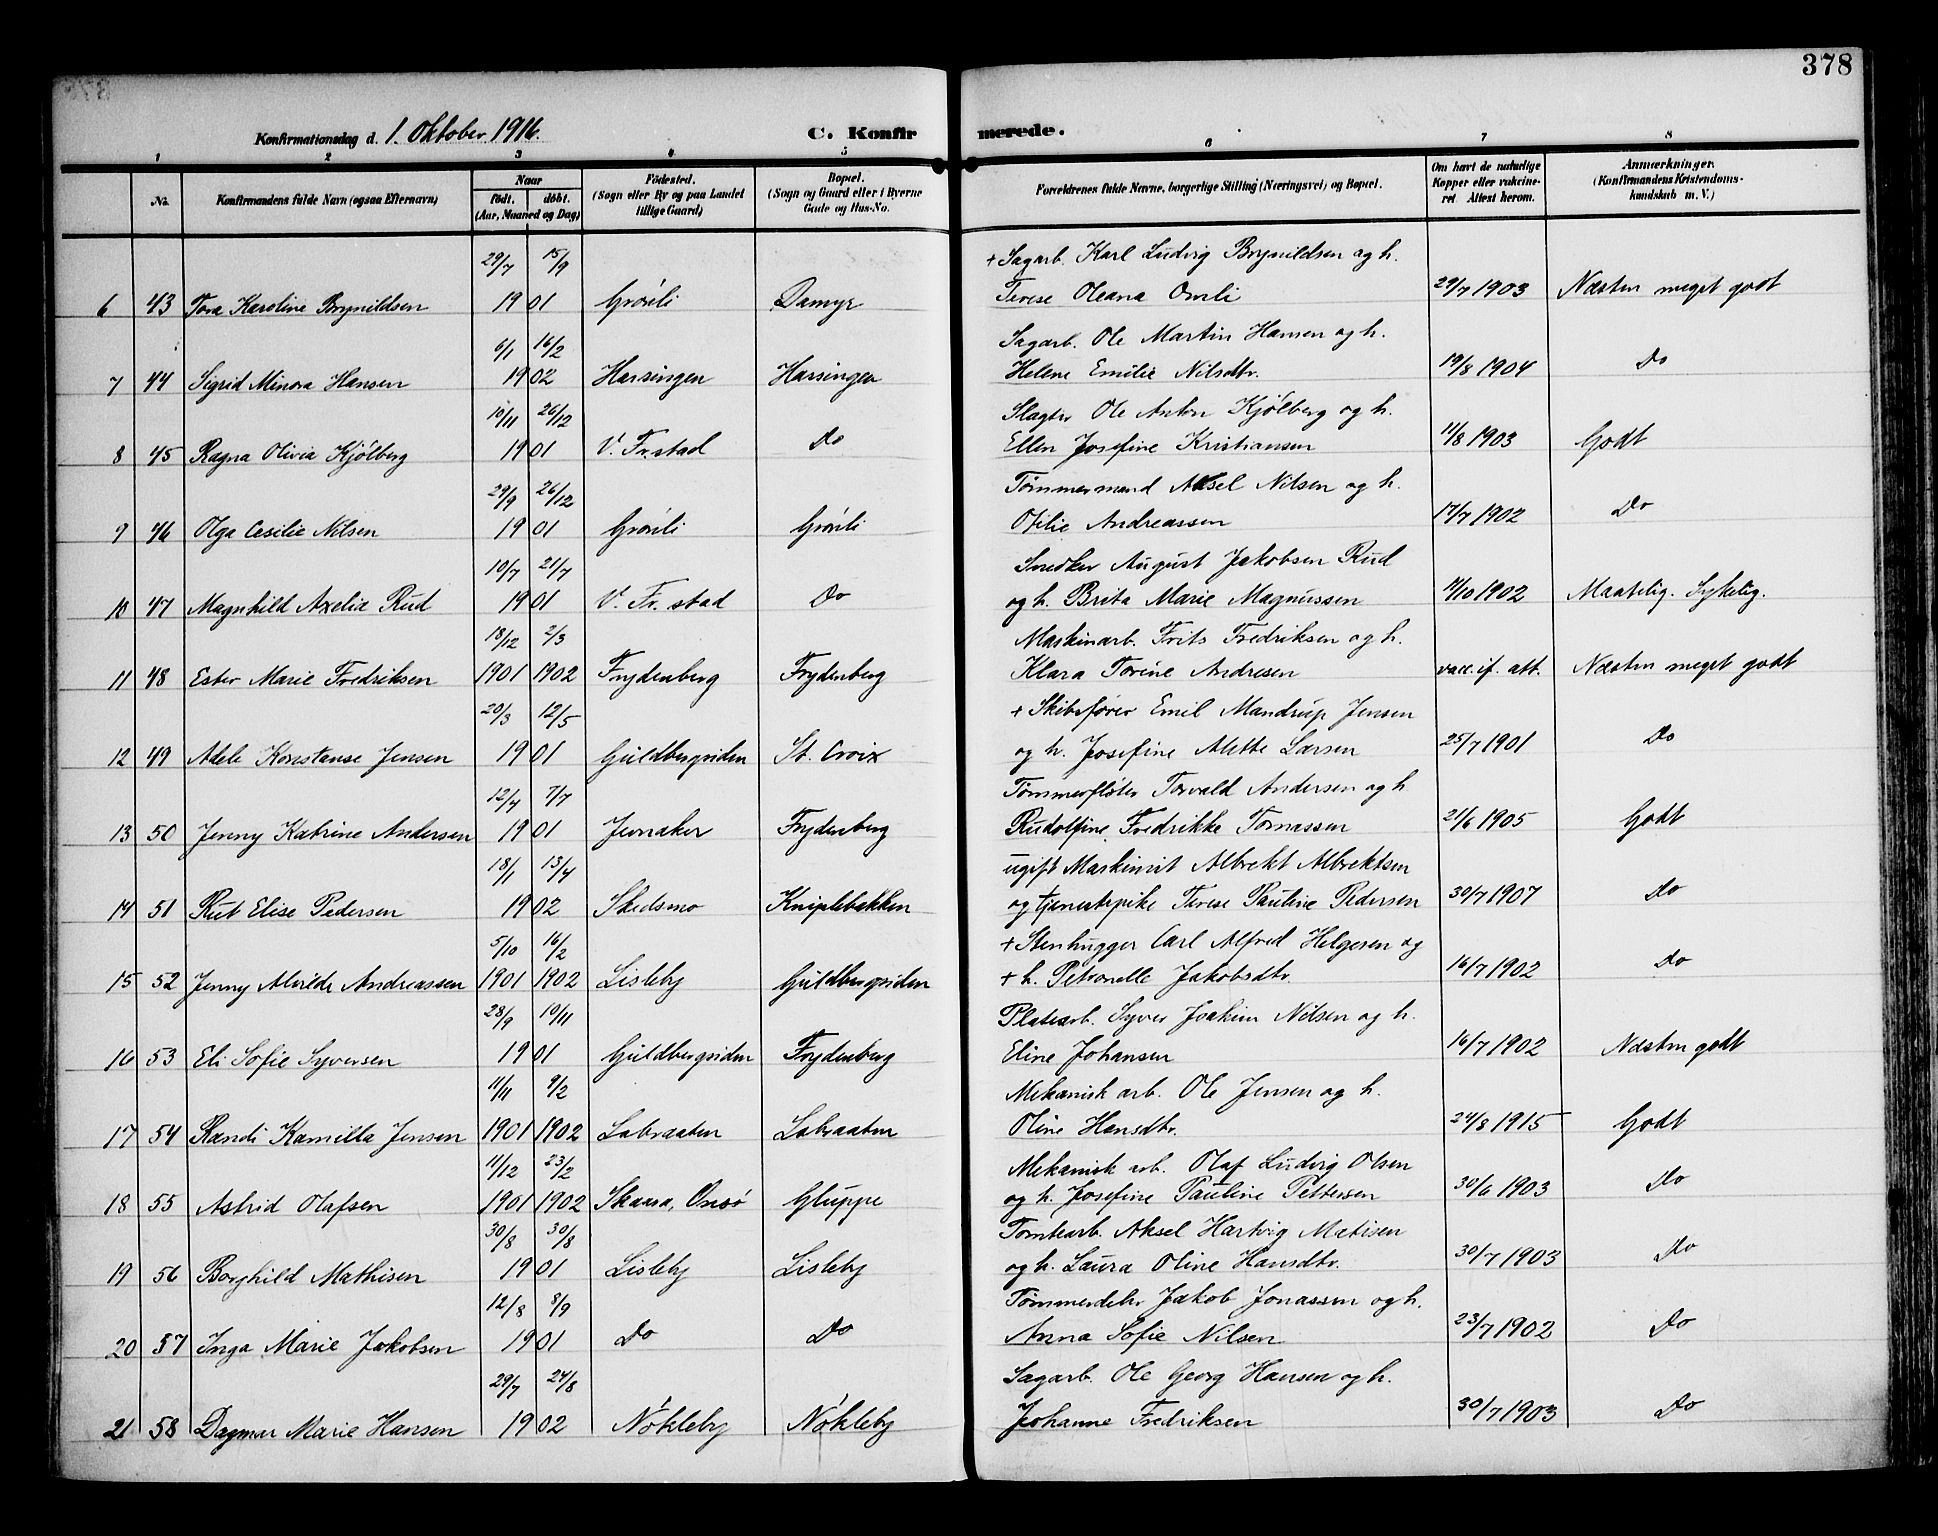 378
Konfirmationsdag d. 1. Oktober 1916. C. Konfirmerede.
1 2 3 4 5 6 7 8
No.
Konfirmandens fulde Navn (ogsaa Efternavn)
Naar
født. døbt.
(Aar, Maaned og Dag)
Fødested.
(Sogn eller By og paa Landet
tillige Gaard)
Bopæl.
(Sogn og Gaard eller i Byerne
Gade og Hus-No.
Forældrenes fulde Navne, borgerlige Stilling (Næringsvei) og Bopæl.
Om havt de naturlige
Kopper eller vakcine-
ret Attest herom.
Anmærkninger.
(Konfirmandens Kristendoms-
kundskab m. V.)
29/7 15/9 + Sagarb. Karl Ludvig Brynildsen og h.
6 43 Tora Karoline Brynildsen 1901 Grønli Damyr Terese Oleana Omli 29/7 1903 Næsten meget godt
6/1 16/2 Sagarb. Ole Martin Hansen og h.
7 44 Sigrid Minora Hansen 1902 Hassingen Hassingen Helene Emilie Nilsdtr. 19/8 1904 Do
10/11 26/12 Slagter Ole Anton Kjølberg og h.
8 45 Ragna Olivia Kjølberg 1901 V. Fr.stad Do Ellen Josefine Kristiansen 11/8 1903 Godt
29/9 26/12 Tømmermand Aksel Nilsen og h.
9 46 Olga Cesilie Nilsen 1901 Grønli Grønli Otilie Andreassen 17/7 1902 Do
10/7 21/7 Snedker August Jakobsen Rud
10 47 Magnhild Axelia Rud 1901 V. Fr.stad Do og h. Brita Marie Magnussen 11/10 1902 Maatelig. Sykelig.
18/12 2/3 Maskinarb. Frits Fredriksen og h.
11 48 Ester Marie Fredriksen 1901 1902 Frydenberg Frydenberg Klara Torine Andresen vacc. if. att. Næsten meget godt
20/3 12/5 + Skibsfører Emil Mandrup Jensen
12 49 Adele Konstanse Jensen 1901 Guldbergsiden St. Croix og h. Josefine Alette Larsen 25/7 1901 Do
12/4 7/7 Tømmerfløter Torvald Andersen og h
13 50 Jenny Katrine Andersen 1901 Jevnaker Frydenberg Rudolfine Fredrikke Tomassen 21/6 1905 Godt
18/1 13/4 ugift Maskinist Albrekt Albrektsen
14 51 Rut Elise Pedersen 1902 Skedsmo Kniplebakken og tjenestepike Terese Pauline Pedersen 30/7 1907 Do
5/10 16/2 + Stenhugger Carl Alfred Helgesen og
15 52 Jenny Alvilde Andreassen 1901 1902 Lisleby Guldbergsiden + h. Petronelle Jakobsdtr. 16/7 1902 Do
28/9 10/11 Platearb. Syver Joakim Nilsen og h.
16 53 Eli Sofie Syversen 1901 Guldbergsiden Frydenberg Eline Johansen 16/7 1902 Næsten godt
11/11 9/2 Mekanisk arb. Ole Jensen og h.
17 54 Randi Kamilla Jensen 1901 1902 Labraaten Labraaten Oline Hansdtr. 24/8 1915 Godt
11/12 23/2 Mekanisk arb. Olaf Ludvig Olsen
18 55 Astrid Olafsen 1901 1902 Skaara, Onsø Gluppe og h. Josefine Pauline Pettersen 30/6 1903 Do
30/8 30/8 Tomtearb. Aksel Hartvig Matisen
19 56 Borghild Mathisen 1901 Lisleby Lisleby og h. Laura Oline Hansdtr. 30/7 1903 Do
12/8 8/9 Tømmerdeler Jakob Jonassen og h.
20 57 Inga Marie Jakobsen 1901 Do Do Anna Sofie Nilsen 23/7 1902 Do
29/7 24/8 Sagarb. Ole Georg Hansen og h.
21 58 Dagmar Marie Hansen 1902 Nøkleby Nøkleby Johanne Fredriksen 30/7 1903 Do